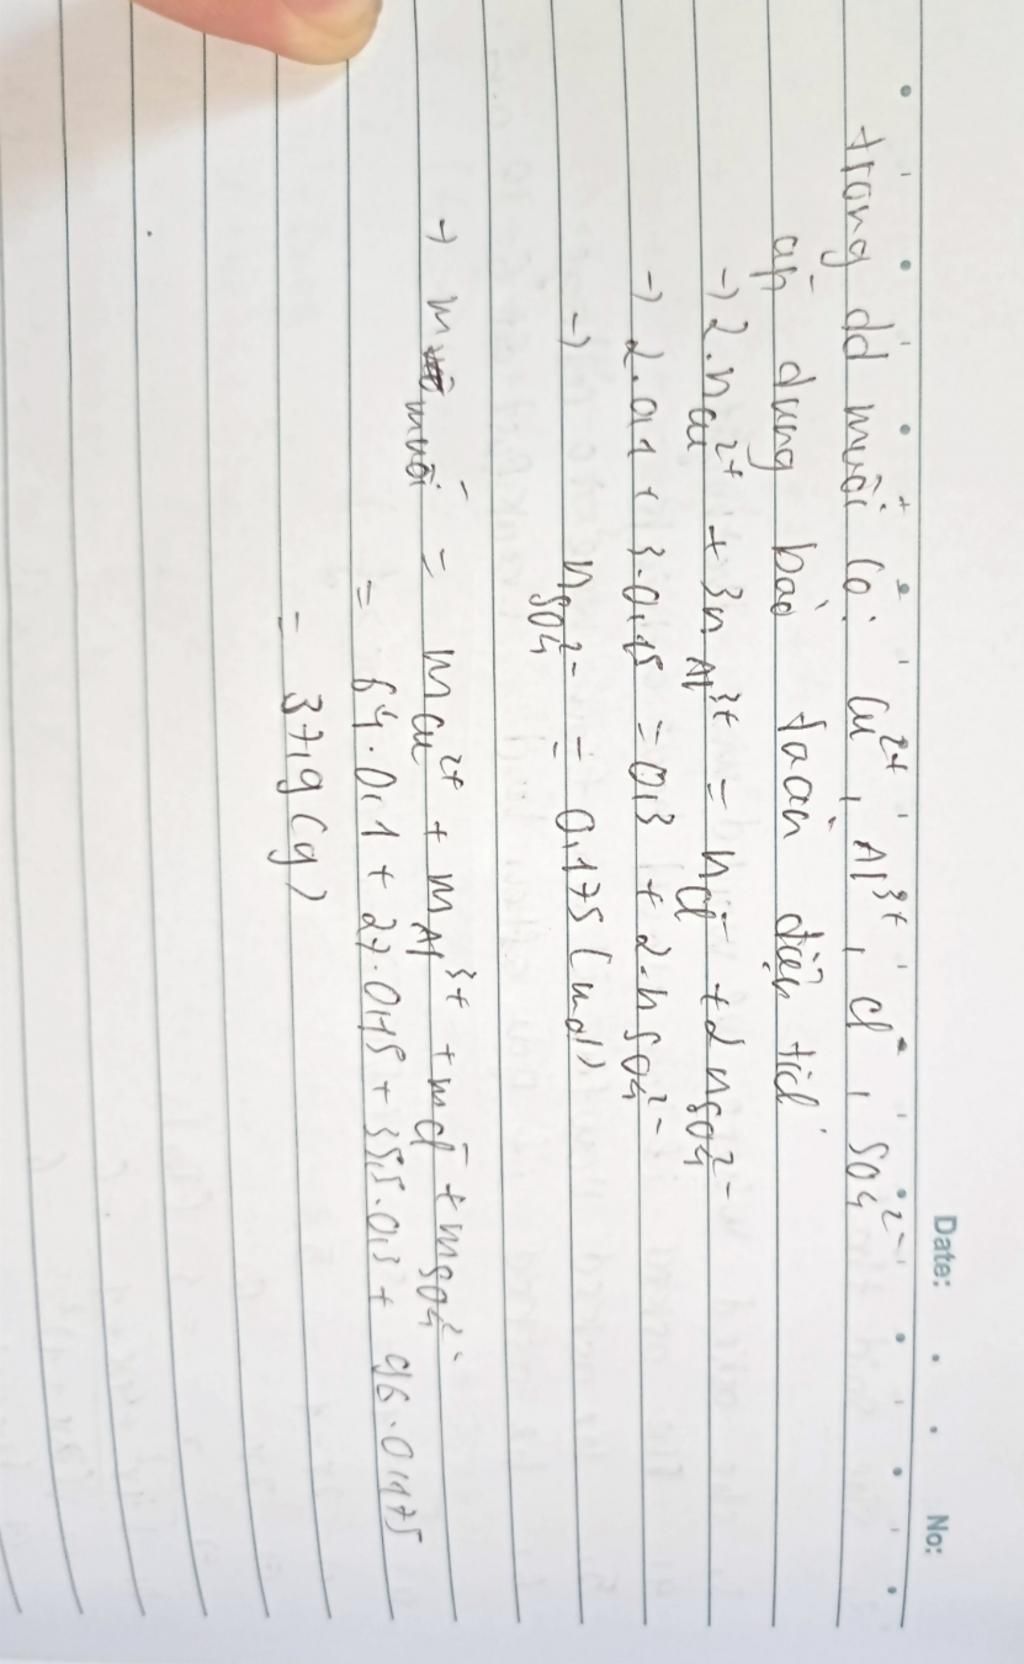 Date: No:
trong dd muối có: Cu²⁺, Al³⁺, Cl⁻, SO₄²⁻
áp dụng bảo toàn điện tích
→ 2.nCu²⁺ + 3nAl³⁺ = nCl⁻ + 2nSO₄²⁻
→ 2.0,1 + 3.0,15 = 0,3 + 2.nSO₄²⁻
→ nSO₄²⁻ = 0,175 (mol)
→ m muối = mCu²⁺ + mAl³⁺ + mCl⁻ + mSO₄²⁻
= 64.0,1 + 27.0,15 + 35,5.0,3 + 96.0,175
= 37,9 (g)